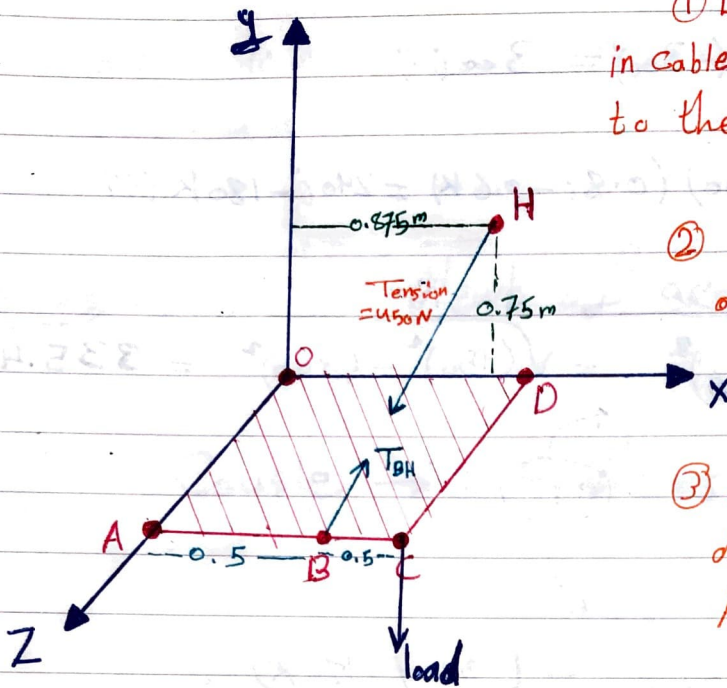 ① 
in Cable
to the
y
H
0.875m
②
Tension
=450N
0.75m
O
= 335.4
D
X
T_BH
③
A
0.5
B
0.5
C
Z
load